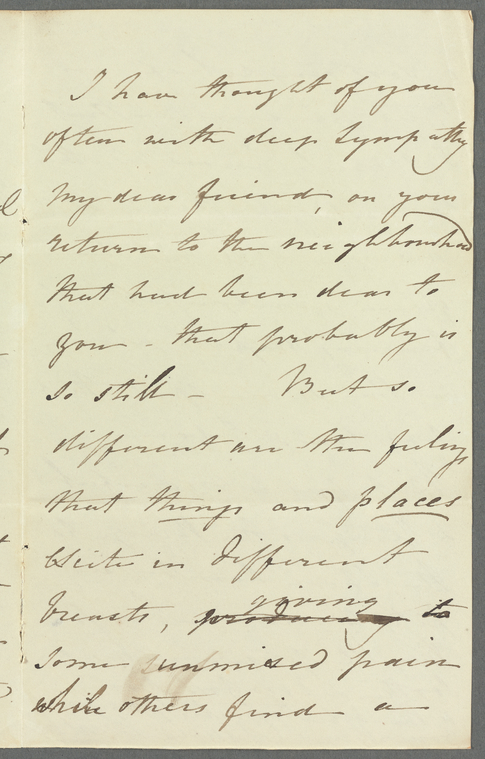 I have thought of you
often with deep sympathy
my dear friend, on your
return to the neighbourhood
that had been dear to
you - that probably is
so still - But so
different are the feelings
that things and places
excite in different
breasts, producing giving to
some unmixed pain
while others find a